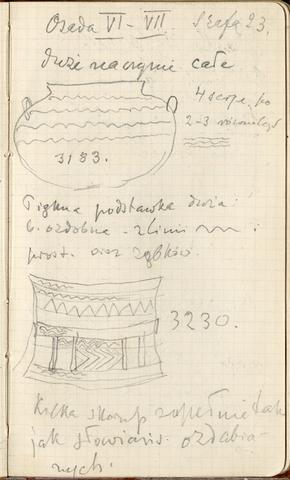 Osada VI - VII. Szafa 23.
duże naczynie całe
4 scope po
2-3 równoległ
3183.
Piękna podstawka duża:
b. ozdobna - z linii i
prost. oraz ząbków.
3230.
Kilka skorup zupełnie tak
jak słowiańs. ozdabia-
nych.